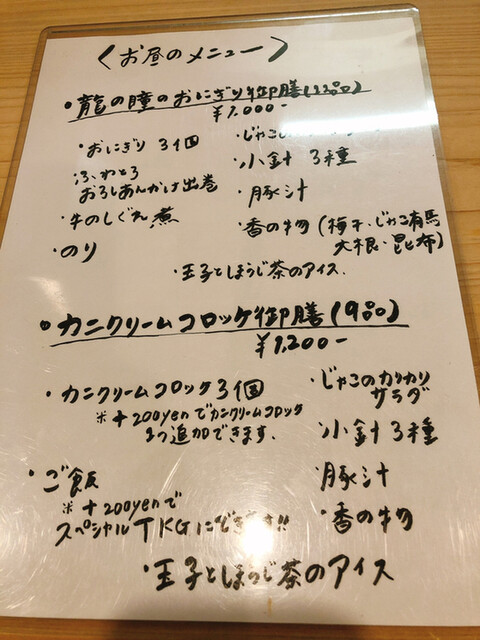 〈お昼のメニュー〉
・龍の瞳のおにぎり御膳(12品)
¥1,000-
・おにぎり 3個
・じゃこ
ふわとろ
おろしあんかけ出巻
・小針 3種
・豚汁
・牛のしぐれ煮
・のり
・香の物(梅干・じゃこ有馬
大根・昆布)
・玉子とほうじ茶のアイス.
・カニクリームコロッケ御膳(9品)
¥1,200-
・カニクリームコロッケ3個
※+200yenでカニクリームコロッケ
1つ追加できます.
・じゃこのカリカリ
サラダ
小針 3種
・ご飯
※+200yenで
スペシャルTKGにできます!!
・豚汁
・香の物
・玉子とほうじ茶のアイス